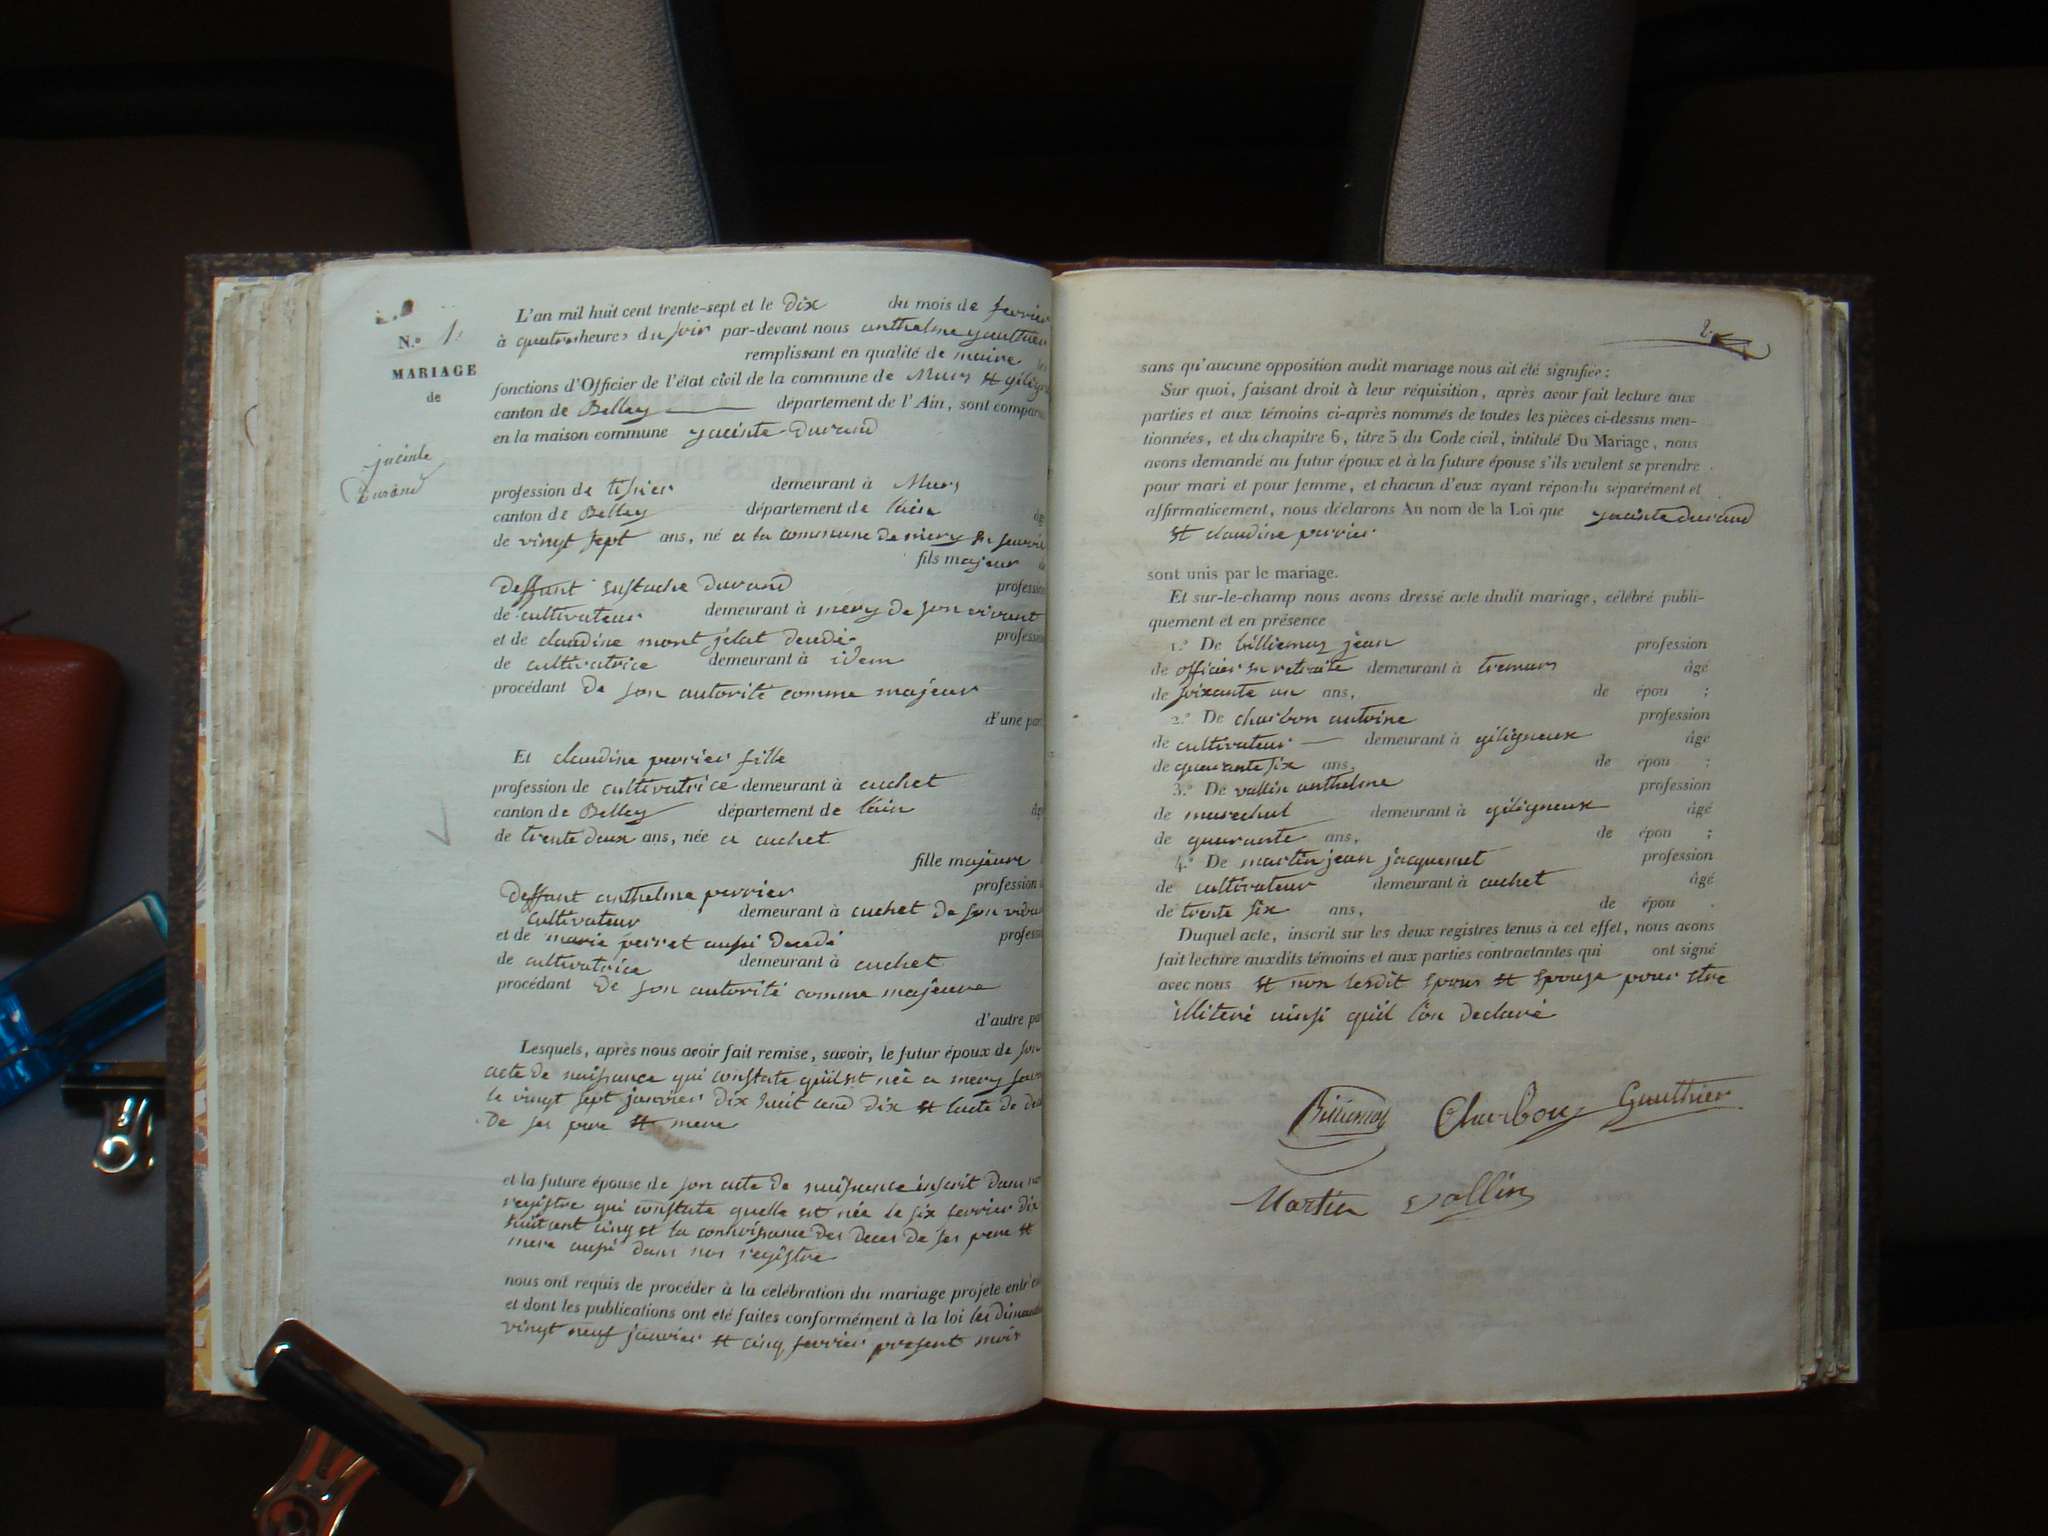 N.º 1.
MARIAGE
de
jacinte
Durand
L'an mil huit cent trente-sept et le dix du mois de fevrier
à quatre heures du soir par-devant nous anthelme gauthier
remplissant en qualité de maire les
fonctions d'Officier de l'état civil de la commune de Murs et geligneux
canton de Belley département de l'Ain, sont comparus
en la maison commune jacinte Durand
profession de tissier demeurant à Murs
canton de Belley département de l'ain âgé
de vingt sept ans, né a la commune de mery en savoie
fils majeur de
deffunt eustache durand profession
de cultivateur demeurant à mery de son vivant
et de claudine mont jelat decedé profession
de cultivatrice demeurant à idem
procédant de son autorité comme majeur
d'une part
Et claudine perrier fille
profession de cultivatrice demeurant à cuchet
canton de Belley département de l'ain âgée
de trente deux ans, née a cuchet
fille majeure
deffunt anthelme perrier profession
cultivateur demeurant à cuchet de son vivant
et de marie perret aussi decedé profession
de cultivatrice demeurant à cuchet
procédant de son autorité comme majeure
d'autre part
Lesquels, après nous avoir fait remise, savoir, le futur époux de son
acte de naissance qui constate quil est née a mery savoie
le vingt sept janvier dix huit cend dix et l'acte de deces
de ses pere et mere
et la future épouse de son acte de naissance inscrit dans nos
registre qui constate quelle est née le six fevrier dix
huit cent cinq et la connoissance des deces de ses pere et
mere aussi dans nos registre
nous ont requis de procéder à la célébration du mariage projeté entr'eux
et dont les publications ont été faites conformément à la loi les dimanches
vingt neuf janvier et cinq fevrier present mois
2.
sans qu'aucune opposition audit mariage nous ait été signifiée:
Sur quoi, faisant droit à leur réquisition, après avoir fait lecture aux
parties et aux témoins ci-après nommés de toutes les pièces ci-dessus men-
tionnées, et du chapitre 6, titre 5 du Code civil, intitulé Du Mariage, nous
avons demandé au futur époux et à la future épouse s'ils veulent se prendre
pour mari et pour femme, et chacun d'eux ayant répondu séparément et
affirmativement, nous déclarons Au nom de la Loi que jacinte durand
et claudine perrier
sont unis par le mariage.
Et sur-le-champ nous avons dressé acte dudit mariage, célébré publi-
quement et en présence
1.º De billiemaz jean profession
de officier en retraite demeurant à tremurs âgé
de soixante un ans, de épou ;
2.º De charbon antoine profession
de cultivateur demeurant à geligneux âgé
de quarante six ans, de épou ;
3.º De vallin anthelme profession
de marechal demeurant à geligneux âgé
de quarante ans, de épou ;
4.º De martin jean jacquemet profession
de cultivateur demeurant à cuchet âgé
de trente six ans, de épou .
Duquel acte, inscrit sur les deux registres tenus à cet effet, nous avons
fait lecture auxdits témoins et aux parties contractantes qui ont signé
avec nous et non lesdit epous et epouse pour etre
illiteré ainsi quil l'on declaré
Billiemaz Charbon Gauthier
Martin vallin